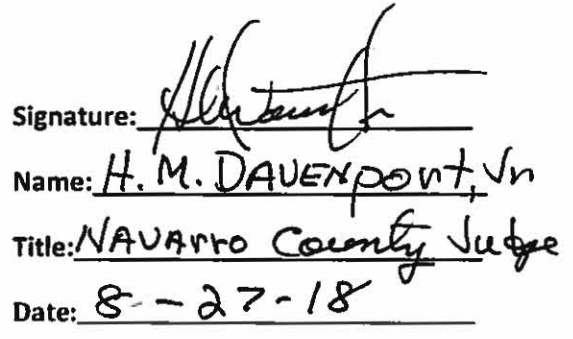 Signature:
Name: H. M. DAVENPORT, Jr
Title: NAVARRO County Judge
Date: 8-27-18